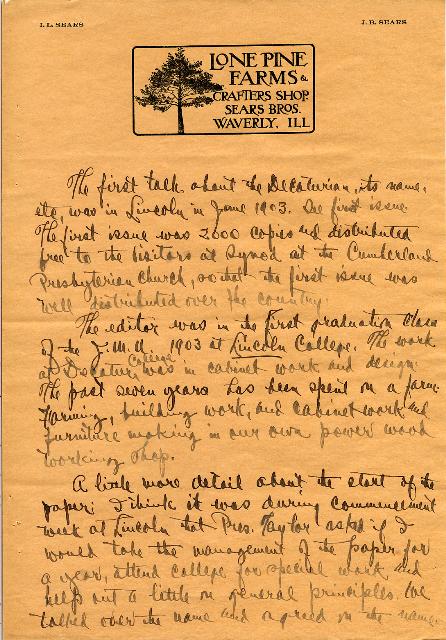 J. L. SEARS
J. R. SEARS
LONE PINE
FARMS &
CRAFTERS SHOP.
SEARS BROS.
WAVERLY, ILL
The first talk about the Decaturian, its name,
etc, was in Lincoln in June 1903. See first issue.
The first issue was 2000 copies and distributed
free to the visitors at Synod at the Cumberland
Presbyterian Church, so that the first issue was
well distributed over the country.
The editor was in the first graduation class
of the J.M.U. 1903 at Lincoln College. The work
at Decatur College was in cabinet work and design.
The past seven years has been spent on a farm.
Farming, building work, and cabinet work and
furniture making in our own power wood
working shop.
A little more detail about the start of the
paper; I think it was during commencement
week at Lincoln that Pres. Taylor asked if I
would take the management of the paper for
a year, attend college for special work and
help out a little on general principles. We
talked over the name and agreed on the name